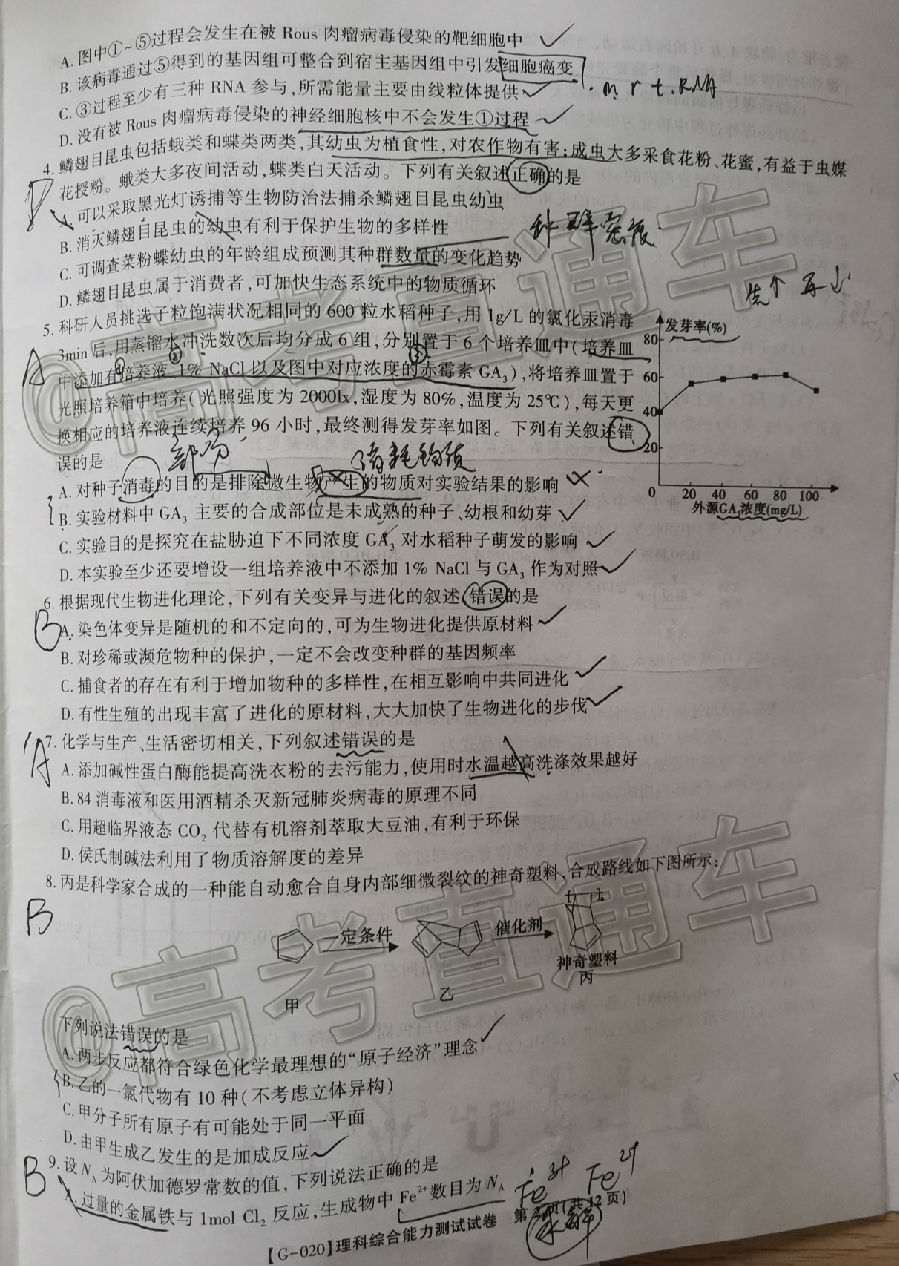 A. 图中①~⑤过程会发生在被 Rous 肉瘤病毒侵染的靶细胞中
B. 该病毒通过⑤得到的基因组可整合到宿主基因组中引发细胞癌变
C. ③过程至少有三种 RNA 参与,所需能量主要由线粒体提供
m r t. RNA
D. 没有被 Rous 肉瘤病毒侵染的神经细胞核中不会发生①过程
4. 鳞翅目昆虫包括蛾类和蝶类两类,其幼虫为植食性,对农作物有害;成虫大多采食花粉、花蜜,有益于虫媒
花授粉。蛾类大多夜间活动,蝶类白天活动。下列有关叙述正确的是
D
可以采取黑光灯诱捕等生物防治法捕杀鳞翅目昆虫幼虫
B. 消灭鳞翅目昆虫的幼虫有利于保护生物的多样性
种群密度
C. 可调查菜粉蝶幼虫的年龄组成预测其种群数量的变化趋势
D. 鳞翅目昆虫属于消费者,可加快生态系统中的物质循环
5. 科研人员挑选子粒饱满状况相同的 600 粒水稻种子,用 1g/L 的氯化汞消毒
3min 后,用蒸馏水冲洗数次后均分成 6 组,分别置于 6 个培养皿中(培养皿
A
中添加有培养液、1% NaCl 以及图中对应浓度的赤霉素 GA₃),将培养皿置于
光照培养箱中培养(光照强度为 2000lx,湿度为 80%,温度为 25℃),每天更
换相应的培养液连续培养 96 小时,最终测得发芽率如图。下列有关叙述错
误的是
部分
消耗物质
发芽率(%)
80
60
40
20
0
20 40 60 80 100
外源GA₃浓度(mg/L)
A. 对种子消毒的目的是排除微生物产生的物质对实验结果的影响
B. 实验材料中 GA₃ 主要的合成部位是未成熟的种子、幼根和幼芽
C. 实验目的是探究在盐胁迫下不同浓度 GA₃ 对水稻种子萌发的影响
D. 本实验至少还要增设一组培养液中不添加 1% NaCl 与 GA₃ 作为对照
6. 根据现代生物进化理论,下列有关变异与进化的叙述,错误的是
B
A. 染色体变异是随机的和不定向的,可为生物进化提供原材料
B. 对珍稀或濒危物种的保护,一定不会改变种群的基因频率
C. 捕食者的存在有利于增加物种的多样性,在相互影响中共同进化
D. 有性生殖的出现丰富了进化的原材料,大大加快了生物进化的步伐
7. 化学与生产、生活密切相关,下列叙述错误的是
A
A. 添加碱性蛋白酶能提高洗衣粉的去污能力,使用时水温越高洗涤效果越好
B. 84 消毒液和医用酒精杀灭新冠肺炎病毒的原理不同
C. 用超临界液态 CO₂ 代替有机溶剂萃取大豆油,有利于环保
D. 侯氏制碱法利用了物质溶解度的差异
8. 丙是科学家合成的一种能自动愈合自身内部细微裂纹的神奇塑料,合成路线如下图所示:
B
一定条件
催化剂
甲
乙
神奇塑料
丙
下列说法错误的是
A. 两步反应都符合绿色化学最理想的“原子经济”理念
B. 乙的一氯代物有 10 种(不考虑立体异构)
C. 甲分子所有原子有可能处于同一平面
D. 由甲生成乙发生的是加成反应
9. 设 Nₐ 为阿伏加德罗常数的值,下列说法正确的是
B
A. 过量的金属铁与 1mol Cl₂ 反应,生成物中 Fe²⁺数目为 Nₐ
Fe³⁺ Fe²⁺
【G-020】理科综合能力测试试卷
第 2 页(共 12 页)
@高考直通车
@高考直通车